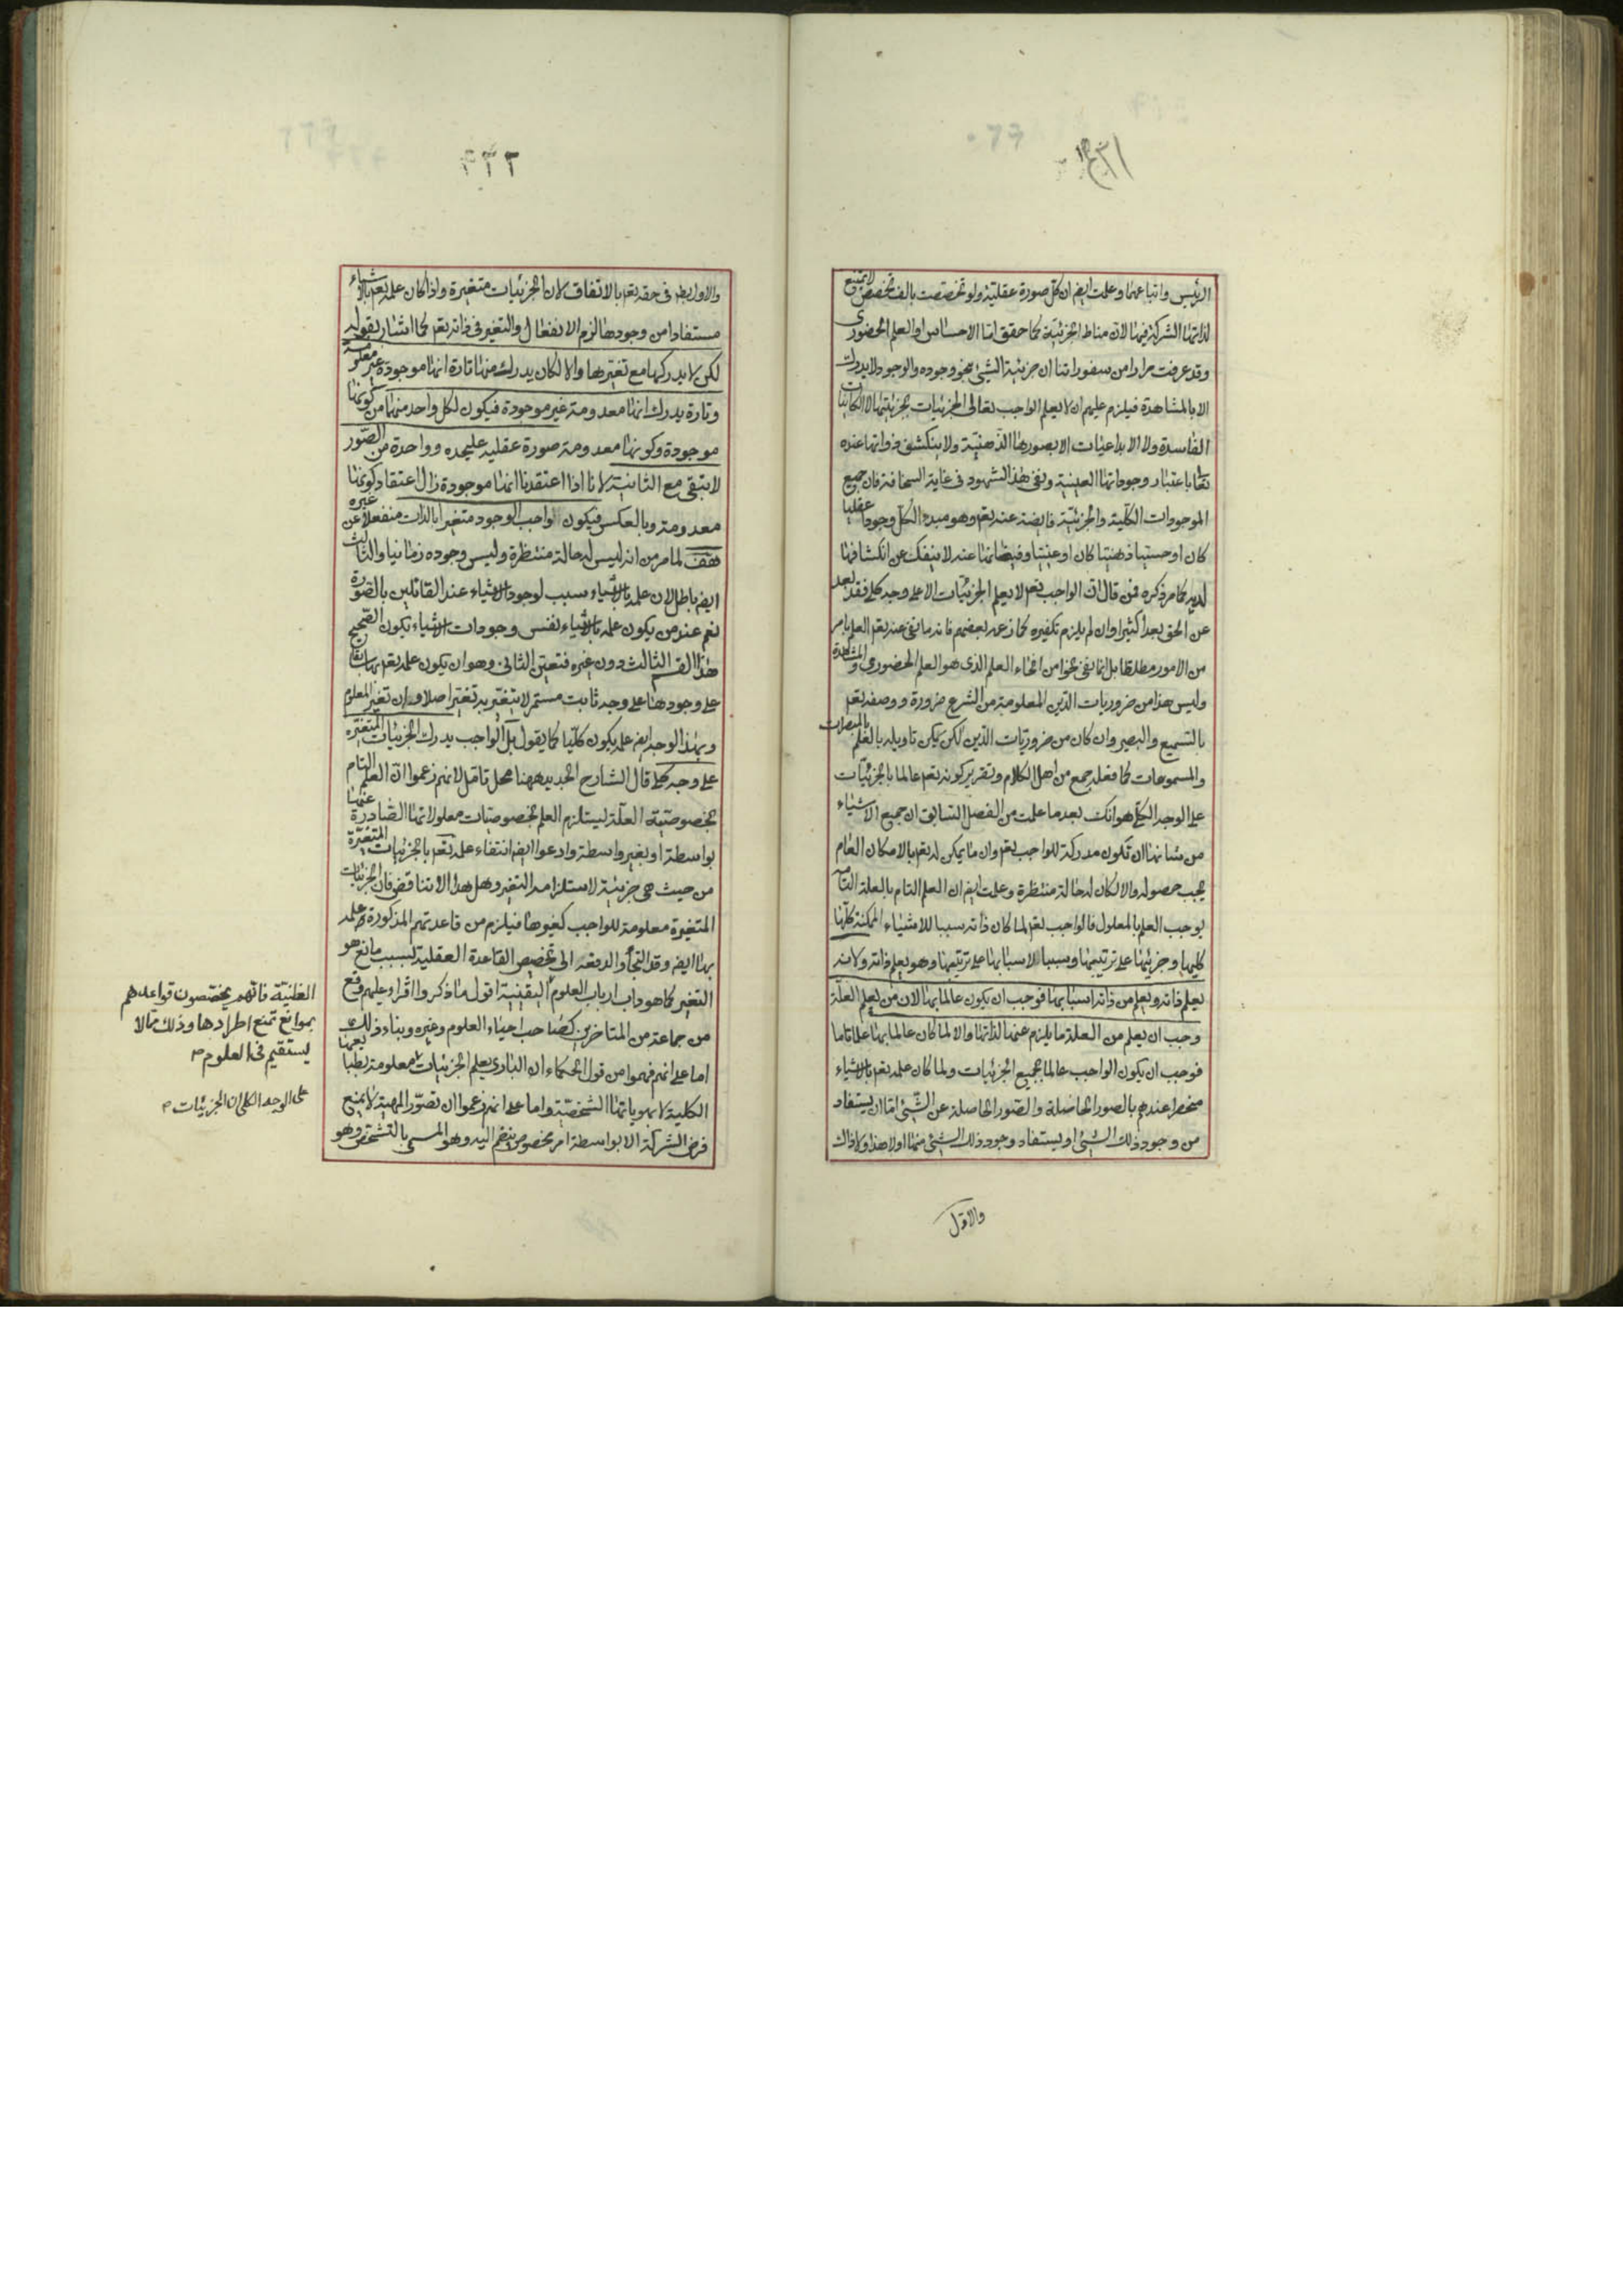 الرئيس واتباعهما وعلمت ايضا ان كل صورة عقلية ولو تخصصت بالف تخصص لا يمتنع
لذاتها الشركة فيها لان مناط الجزئية كما حقق اما الاحساس او العلم الحضورى
وقد عرفت مرارا من سفوراتنا ان جزئية الشئ نحو وجوده والوجود لا يدرك
الا بالمشاهدة فيلزم عليهم ان لا يعلم الواجب تعالى الجزئيات بجزئيتها لا الكائنات
الفاسدة ولا الابداعيات الا بصورها الذهنية ولا ينكشف ذواتها عنده
تعا باعتبار وجوداتها العينية ونفى هذا الشهود فى غاية السخافة فان جميع
الموجودات الكلية والجزئية فايضة عنه تعم وهو مبدء الكل وجود عقليا
كان او حسيا ذهنيا كان او عينيا وفيضانها عنه لا ينفك عن انكشافها
لديه كما مر ذكره فمن قال ان الواجب تعم لا يعلم الجزئيات الا على وجه كلى فقد بعد
عن الحق بعدا كثيرا وان لم يلزم تكفيره كما زعمه بعضهم فانه ما نفى عنه تعم العلم بامر
من الامور مطلقا بل انما نفى نحوا من انحاء العلم الذى هو العلم الحضورى والمشاهدة
وليس هذا من ضروريات الدين المعلومة من الشرع ضرورة ووصفه تعم
بالسميع والبصير وان كان من ضروريات الدين لكن يمكن تاويله بالعلم بالمبصرات
والمسموعات كما فعله جمع من اهل الكلام وتقرير كونه تعم عالما بالجزئيات
على الوجه الكلى هو انك بعد ما علمت من الفصل السابق ان جميع الاشياء
من شانها ان تكون مدركة للواجب تعم وان ما يمكن له تعم بالامكان العام
يجب حصوله والا لكان له حالة منتظرة وعلمت ايضا ان العلم التام بالعلة التامة
يوجب العلم بالمعلول فالواجب تعم لما كان ذاته سببا للاشياء الممكنة كلها
كليها وجزئيها على ترتيبها وسببا لاسبابها على ترتيبها وهو يعلم ذاته ولانه
يعلم ذاته ويعلم من ذاته اسبابها فوجب ان يكون عالما بها لان من يعلم العلة
وجب ان يعلم من العلة ما يلزم عنها لذاتها والا لما كان عالما بها علما تاما
فوجب ان يكون الواجب عالما بجميع الجزئيات ولما كان علمه تعم بالاشياء
منحصرا عندهم بالصور الحاصلة والصور الحاصلة عن الشئ اما ان يستفاد
من وجود ذلك الشئ او يستفاد وجود ذلك الشئ منها اولا هذا ولا ذاك
والاول
٢٢٢
والاول باطل فى حقه تعم بالاتفاق لان الجزئيات متغيرة واذا كان علمه تعم بالاشياء
مستفادا من وجودها لزم الانفعال والتغير فى ذاته تعم كما اشار بقوله
لكن لا يدركها مع تغيرها والا لكان يدرك منها تارة انها موجودة غير معدومة
وتارة يدرك انها معدومة غير موجودة فيكون لكل واحد منها من كونها
موجودة وكونها معدومة صورة عقلية عليحده وواحدة من الصور
لا يبقى مع الثانية لانا اذا اعتقدنا انها موجودة زال اعتقاد كونها
معدومة وبالعكس فيكون الواجب الوجود متغيرا بالذات منفعلا عن غيره
هف لما مر من انه ليس له حالة منتظرة وليس وجوده زمانيا والثالث
ايضا باطل لان علمه بالاشياء سبب لوجود الاشياء عند القائلين بالصورة
نعم عند من يكون علمه بالاشياء نفس وجودات الاشياء يكون الصحيح
هذا القسم الثالث دون غيره فتعين الثانى وهو ان يكون علمه تعم بها سابقا
على وجودها على وجه ثابت مستمر لا يتغير به تغيرا اصلا وان تغير المعلوم
وبهذا الوجه ايضا علمه يكون كليا كما يقول بل الواجب يدرك الجزئيات المتغيرة
على وجه كلى قال الشارح الجديد ههنا محل تامل لانهم زعموا ان العلم التام
بخصوصية العلة ليستلزم العلم بخصوصيات معلولاتها الصادرة عنها
بواسطة او بغير واسطة وادعوا ايضا انتفاء علمه تعم بالجزئيات المتغيرة
من حيث هى جزئية لاستلزامه التغير وهل هذا الا تناقض فان الجزئيات
المتغيرة معلومة للواجب كغيرها فيلزم من قاعدتهم المذكورة علمه
بها ايضا وقد التجأوا لدفعه الى تخصيص القاعدة العقلية بسبب مانع هو
التغير كما هو داب ارباب العلوم اليقينية اقول ما ذكروا اقراء عليهم وقع
من جماعة من المتاخرين كصاحب احياء العلوم وغيره وبناء ذلك
اما على انهم فهموا من قول الحكماء ان البارى يعلم الجزئيات معلومة بطبايعها
الكلية لا بهوياتها الشخصية واما على انهم زعموا ان تصور المهية لا يمنع
فرض الشركة الا بواسطة امر مخصوص ينضم اليه وهو المسمى بالتشخص وهو
الظنية فانهم يخصصون قواعدهم
بموانع تمنع اطرادها وذلك مما لا
يستقيم فى العلوم
على الوجه الكلى ان الجزئيات